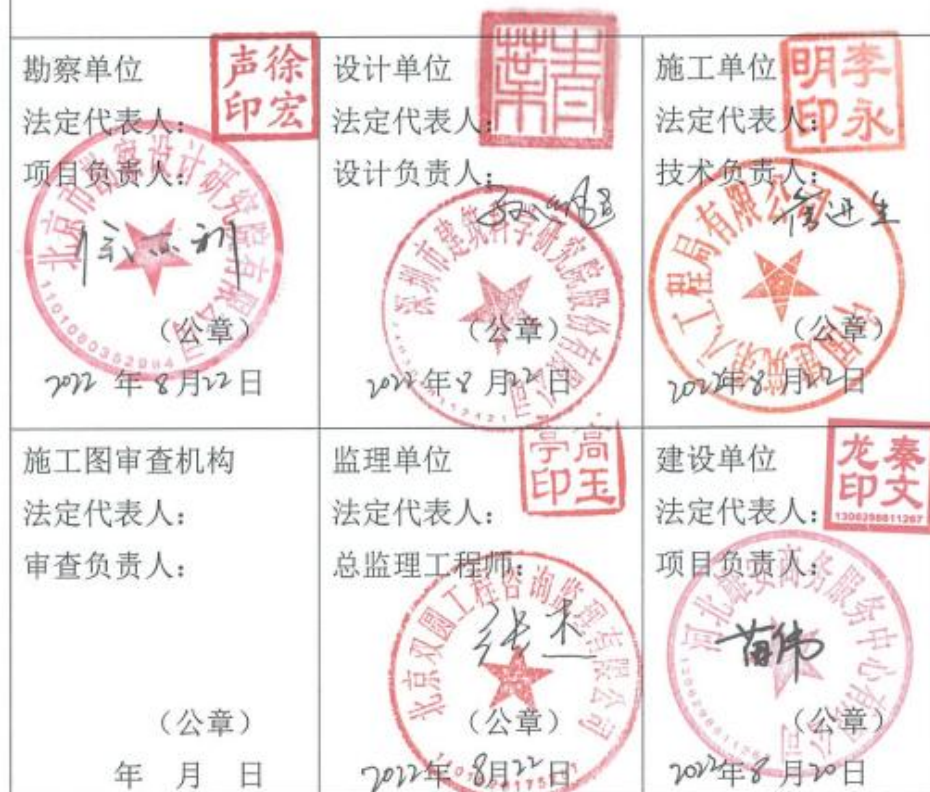 勘察单位
徐宏声印
法定代表人:
项目负责人:
北京市勘察设计研究院有限公司
1101080352984
(公章)
2022年8月22日
设计单位
叶青
法定代表人:
设计负责人:
深圳市建筑科学研究院股份有限公司
(公章)
2022年8月22日
施工单位
李永明印
法定代表人:
技术负责人:
中国建筑第八工程局有限公司
(公章)
2022年8月22日
施工图审查机构
法定代表人:
审查负责人:
(公章)
年 月 日
监理单位
高玉亭印
法定代表人:
总监理工程师:
张杰
北京双圆工程咨询监理有限公司
(公章)
2022年8月22日
建设单位
秦文龙印
1306298811267
法定代表人:
项目负责人:
苗伟
河北雄安商务服务中心有限公司
(公章)
2022年8月20日